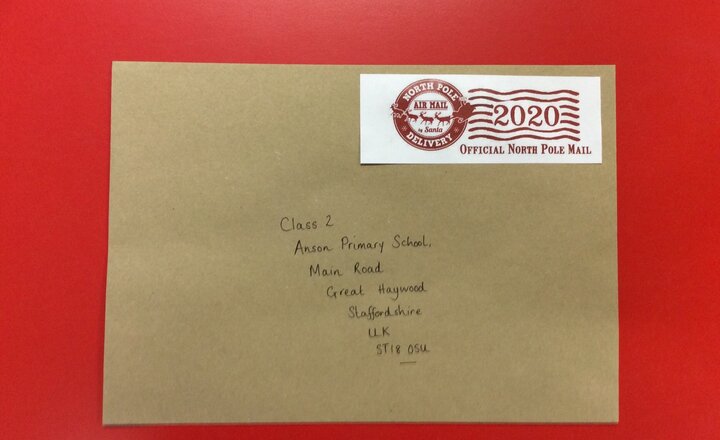 NORTH POLE
AIR MAIL
by Santa
DELIVERY
2020
OFFICIAL NORTH POLE MAIL
Class 2
Anson Primary School,
Main Road
Great Haywood
Staffordshire
UK
ST18 0SU